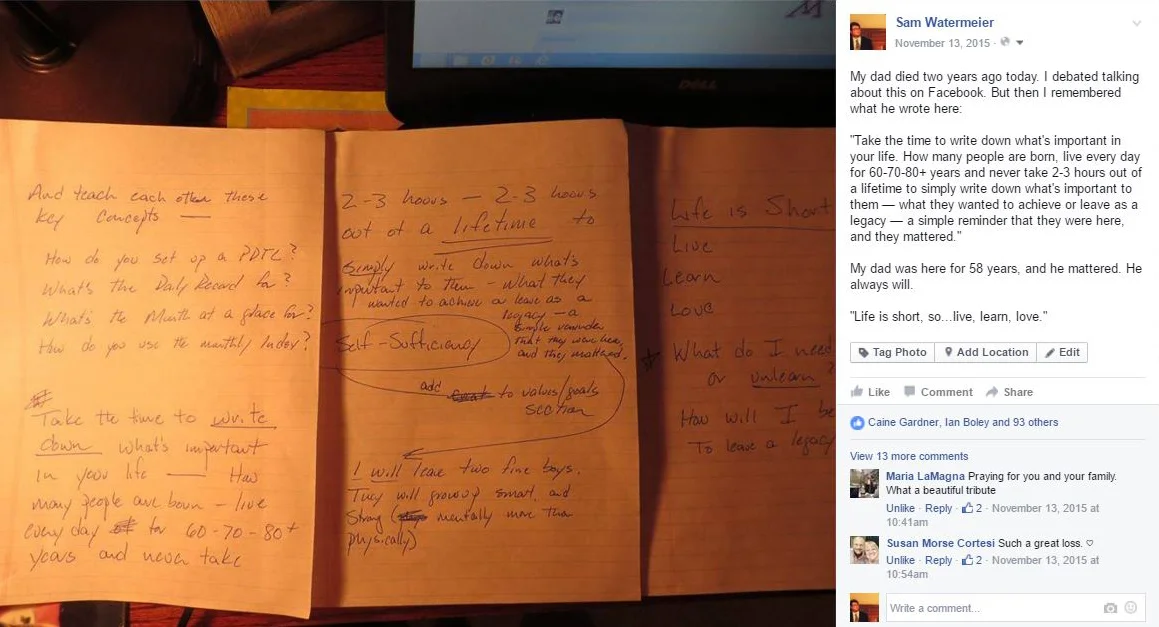 And teach each other these
key concepts —
How do you set up a PDTL?
What's the Daily Record for?
What's the Month at a glace for?
How do you use the monthly Index?
Take the time to write
down what's important
in your life — How
many people are born – live
every day for 60-70-80+
years and never take
2-3 hours – 2-3 hours
out of a lifetime to
Simply write down what's
important to them – what they
wanted to achieve or leave as a
legacy – a
simple reminder
that they were here,
and they mattered.
Self-Sufficiency
add to values/goals
section
I will leave two fine boys.
They will grow up smart and
Strong (mentally more than
physically)
Life is Short
Live
Learn
Love
What do I need
or unlearn?
How will I be
To leave a legacy
DELL
Sam Watermeier
November 13, 2015 ·
My dad died two years ago today. I debated talking
about this on Facebook. But then I remembered
what he wrote here:
"Take the time to write down what's important in
your life. How many people are born, live every day
for 60-70-80+ years and never take 2-3 hours out of
a lifetime to simply write down what's important to
them — what they wanted to achieve or leave as a
legacy — a simple reminder that they were here,
and they mattered."
My dad was here for 58 years, and he mattered. He
always will.
"Life is short, so...live, learn, love."
Tag Photo Add Location Edit
Like Comment Share
Caine Gardner, Ian Boley and 93 others
View 13 more comments
Maria LaMagna Praying for you and your family.
What a beautiful tribute
Unlike · Reply · 2 · November 13, 2015 at
10:41am
Susan Morse Cortesi Such a great loss. ♡
Unlike · Reply · 2 · November 13, 2015 at
10:54am
Write a comment...